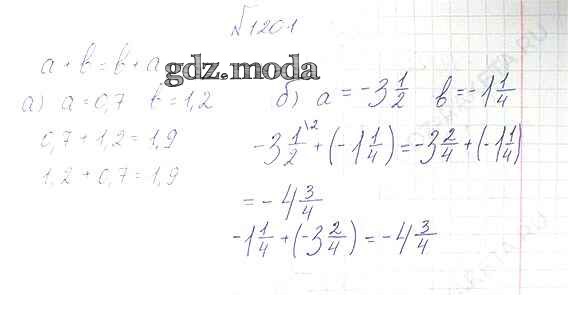 №1201
a + b = b + a
gdz.moda
а) a = 0,7 b = 1,2
0,7 + 1,2 = 1,9
1,2 + 0,7 = 1,9
б) a = -3 1/2 b = -1 1/4
-3 1/2 \2 + (-1 1/4) = -3 2/4 + (-1 1/4)
= -4 3/4
-1 1/4 + (-3 2/4) = -4 3/4